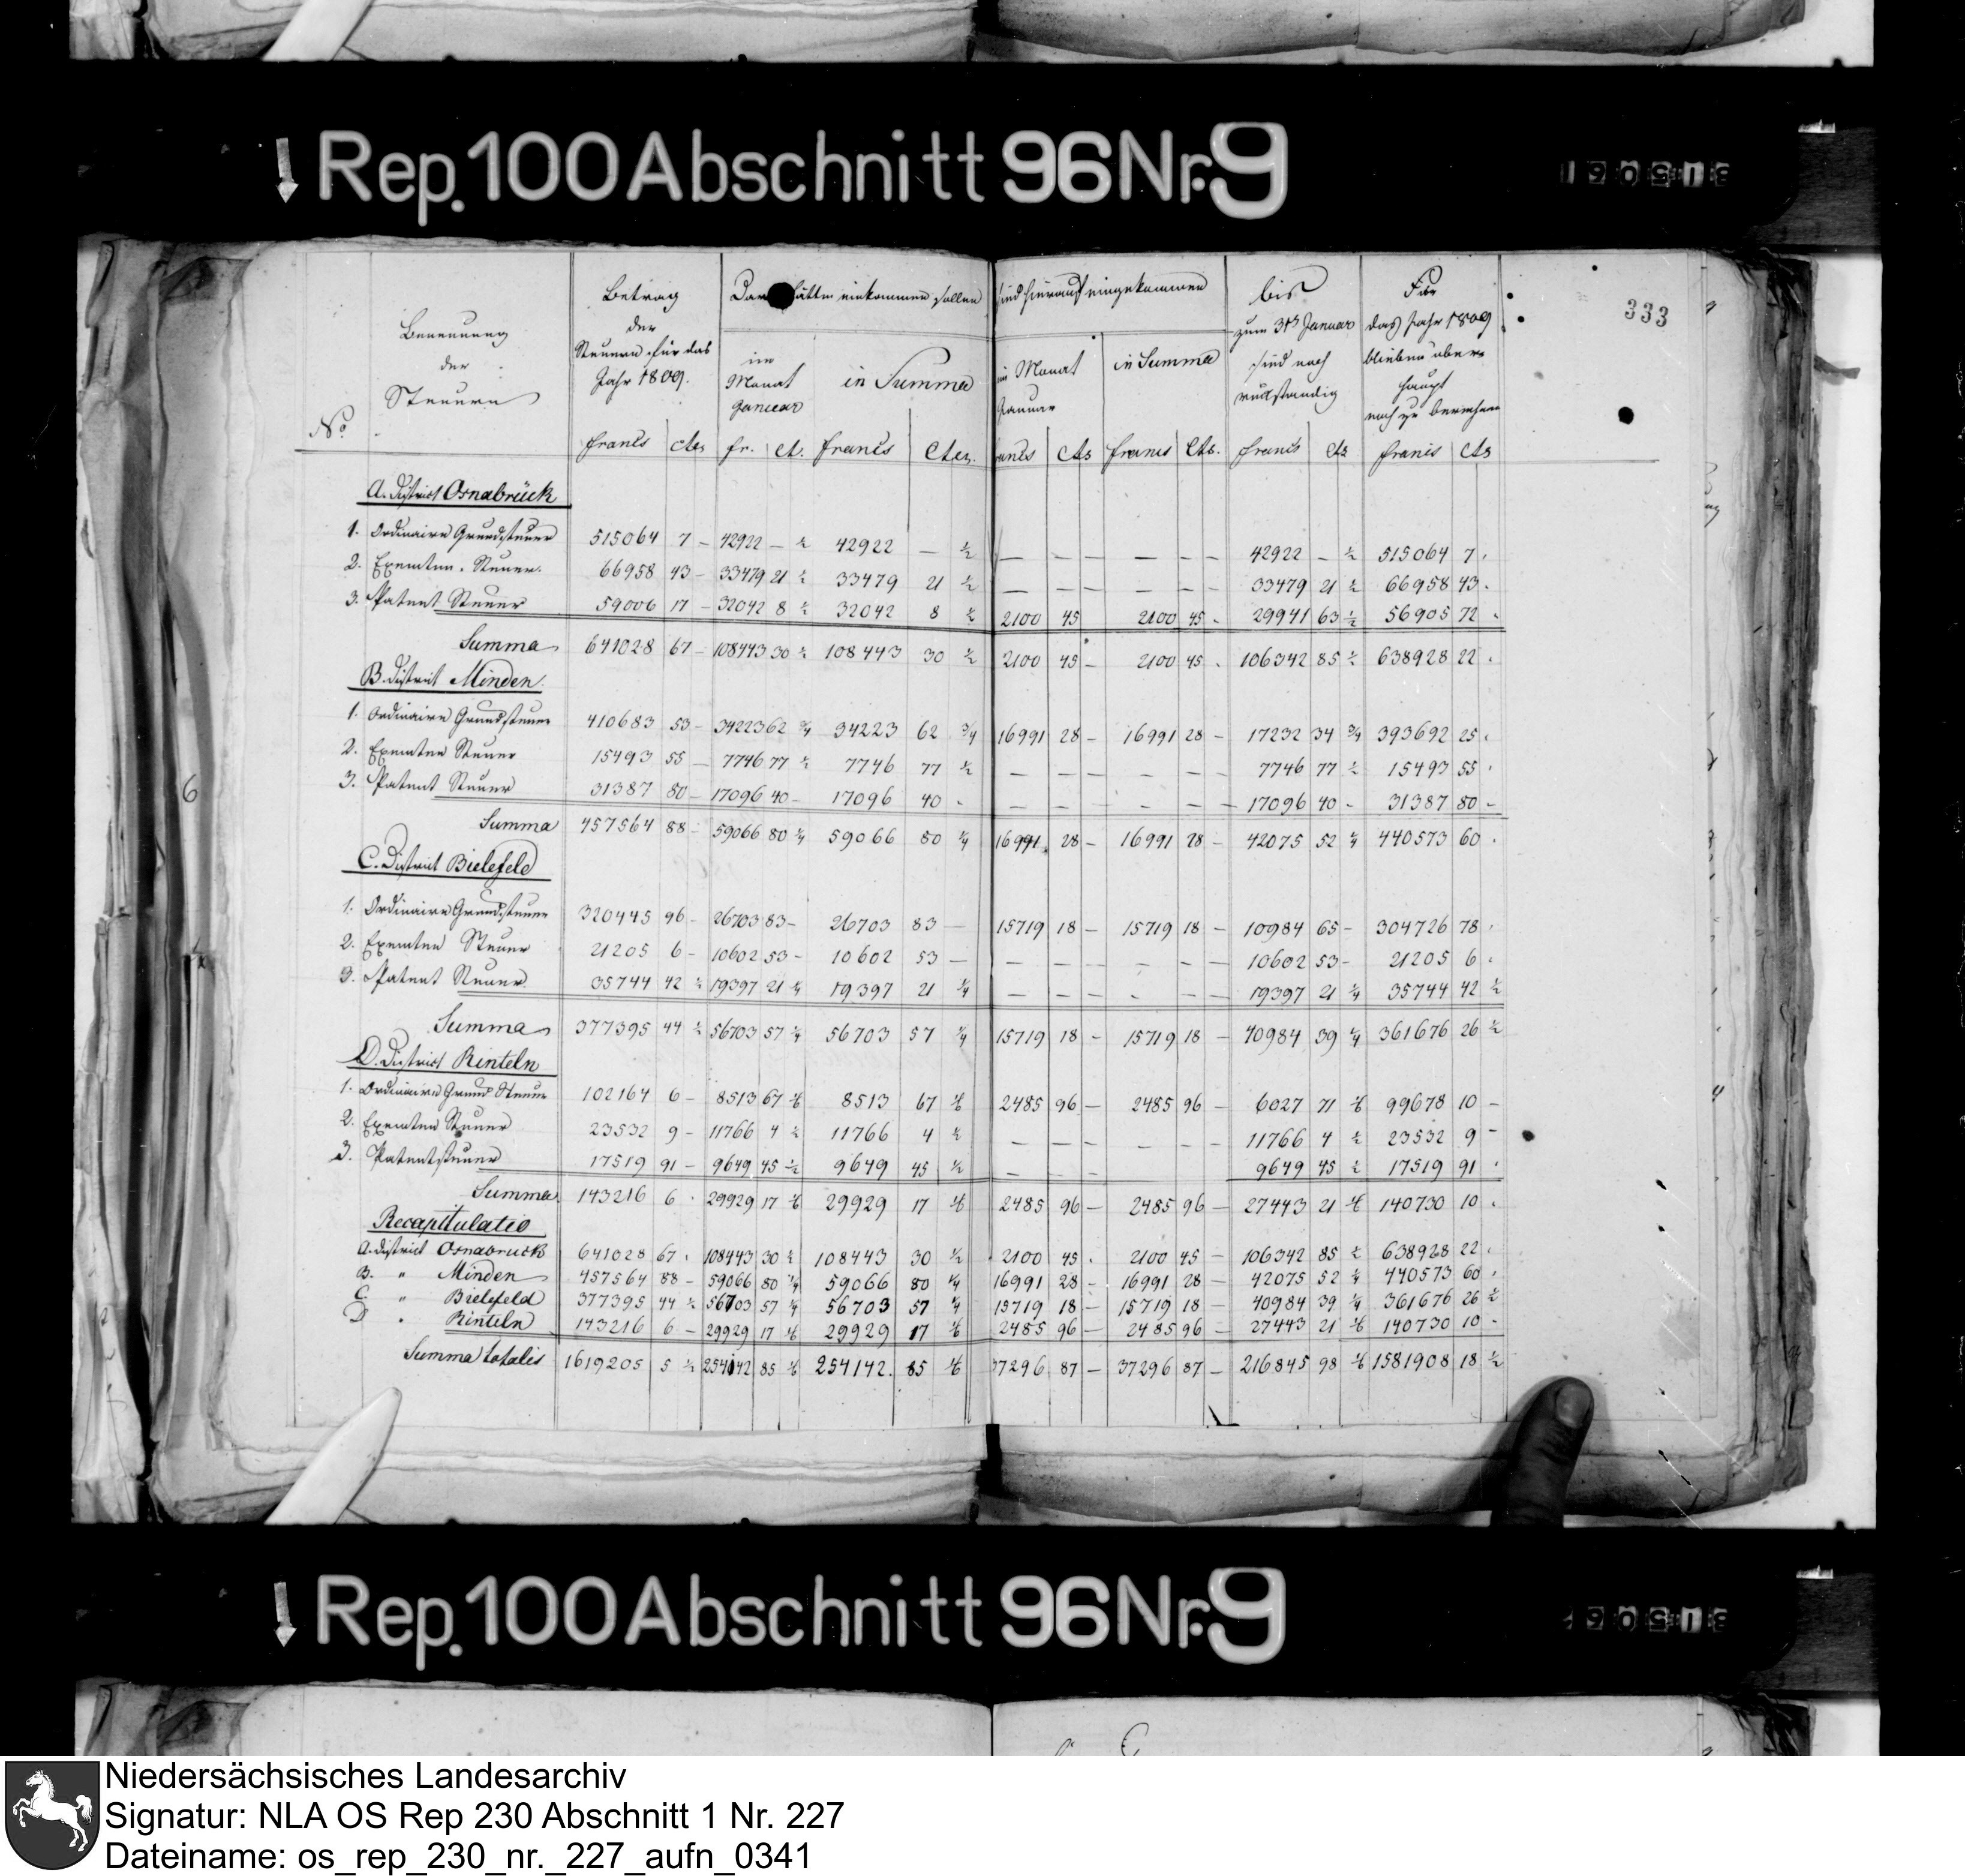 Rep. 100 Abschnitt 96 Nr. 9
333
No
Benennung
der
Steuern
Betrag
der
Steuern für das
Jahr 1809.
hätten einkommen sollen
im
Monat
Januar
in Summa
sind hierauf eingekommen
im Monat
Januar
in Summa
bis
zum 31ts Januar
sind noch
rückständig
Für
das Jahr 1809
bleiben über-
haupt
noch zu
francs cts fr. ct. francs cts francs cts francs cts. francs cts francs cts
A. District Osnabrück
1. Ordinaire Grundsteuer 515064 7 – 42922 – ½ 42922 – ½ – – – – – – 42922 – ½ 515064 7.
2. Exemten Steuer. 66958 43 – 33479 21 ½ 33479 21 ½ – – – – – – 33479 21 ½ 66958 43.
3. Patent Steuer 59006 17 – 32042 8 ½ 32042 8 ½ 2100 45 2100 45. 29941 63 ½ 56905 72.
Summa 641028 67 – 108443 30 ½ 108443 30 ½ 2100 45 – 2100 45. 106342 85 ½ 638928 22.
B. District Minden.
1. Ordinaire Grundsteuer 410683 53 – 34223 62 ¾ 34223 62 ¾ 16991 28 – 16991 28 – 17232 34 ¾ 393692 25.
2. Exemten Steuer 15493 55 – 7746 77 ½ 7746 77 ½ – – – – – – 7746 77 ½ 15493 55.
3. Patent Steuer 31387 80 – 17096 40 – 17096 40. – – – – – – 17096 40 – 31387 80 –
Summa 457564 88 – 59066 80 ¼ 59066 80 ¼ 16991 28 – 16991 28 – 42075 52 ¼ 440573 60.
C. District Bielefeld
1. Ordinaire Grundsteuer 320445 96 – 26703 83 – 26703 83 – 15719 18 – 15719 18 – 10984 65 – 304726 78.
2. Exemten Steuer 21205 6 – 10602 53 – 10602 53 – – – – – – – 10602 53 – 21205 6.
3. Patent Steuer 35744 42 ½ 19397 21 ¼ 19397 21 ¼ – – – – – – 19397 21 ¼ 35744 42 ½
Summa 377395 44 ½ 56703 57 ¼ 56703 57 ¼ 15719 18 – 15719 18 – 40984 39 ¼ 361676 26 ½
D. District Rinteln
1. Ordinaire Grund Steuer 102164 6 – 8513 67 ⅙ 8513 67 ⅙ 2485 96 – 2485 96 – 6027 71 ⅙ 99678 10 –
2. Exemten Steuer 23532 9 – 11766 4 ½ 11766 4 ½ – – – – – – 11766 4 ½ 23532 9 –
3. Patentsteuer 17519 91 – 9649 45 ½ 9649 45 ½ – – – 9649 45 ½ 17519 91.
Summa 143216 6. 29929 17 ⅙ 29929 17 ⅙ 2485 96 – 2485 96 – 27443 21 ⅙ 140730 10.
Recapitulatio
A. District Osnabrück 641028 67. 108443 30 ½ 108443 30 ½ 2100 45. 2100 45 – 106342 85 ½ 638928 22.
B. " Minden 457564 88 – 59066 80 ¼ 59066 80 ¼ 16991 28 – 16991 28 – 42075 52 ¼ 440573 60.
C " Bielefeld 377395 44 ½ 56703 57 ¼ 56703 57 ¼ 15719 18 – 15719 18 – 40984 39 ¼ 361676 26 ½
D " Rinteln 143216 6 – 29929 17 ⅙ 29929 17 ⅙ 2485 96 – 2485 96 – 27443 21 ⅙ 140730 10.
Summa totalis 1619205 5 ½ 254142 85 ⅙ 254142. 85 ⅙ 37296 87 – 37296 87 – 216845 98 ⅙ 1581908 18 ½
6
Rep. 100 Abschnitt 96 Nr. 9
Niedersächsisches Landesarchiv
Signatur: NLA OS Rep 230 Abschnitt 1 Nr. 227
Dateiname: os_rep_230_nr._227_aufn_0341